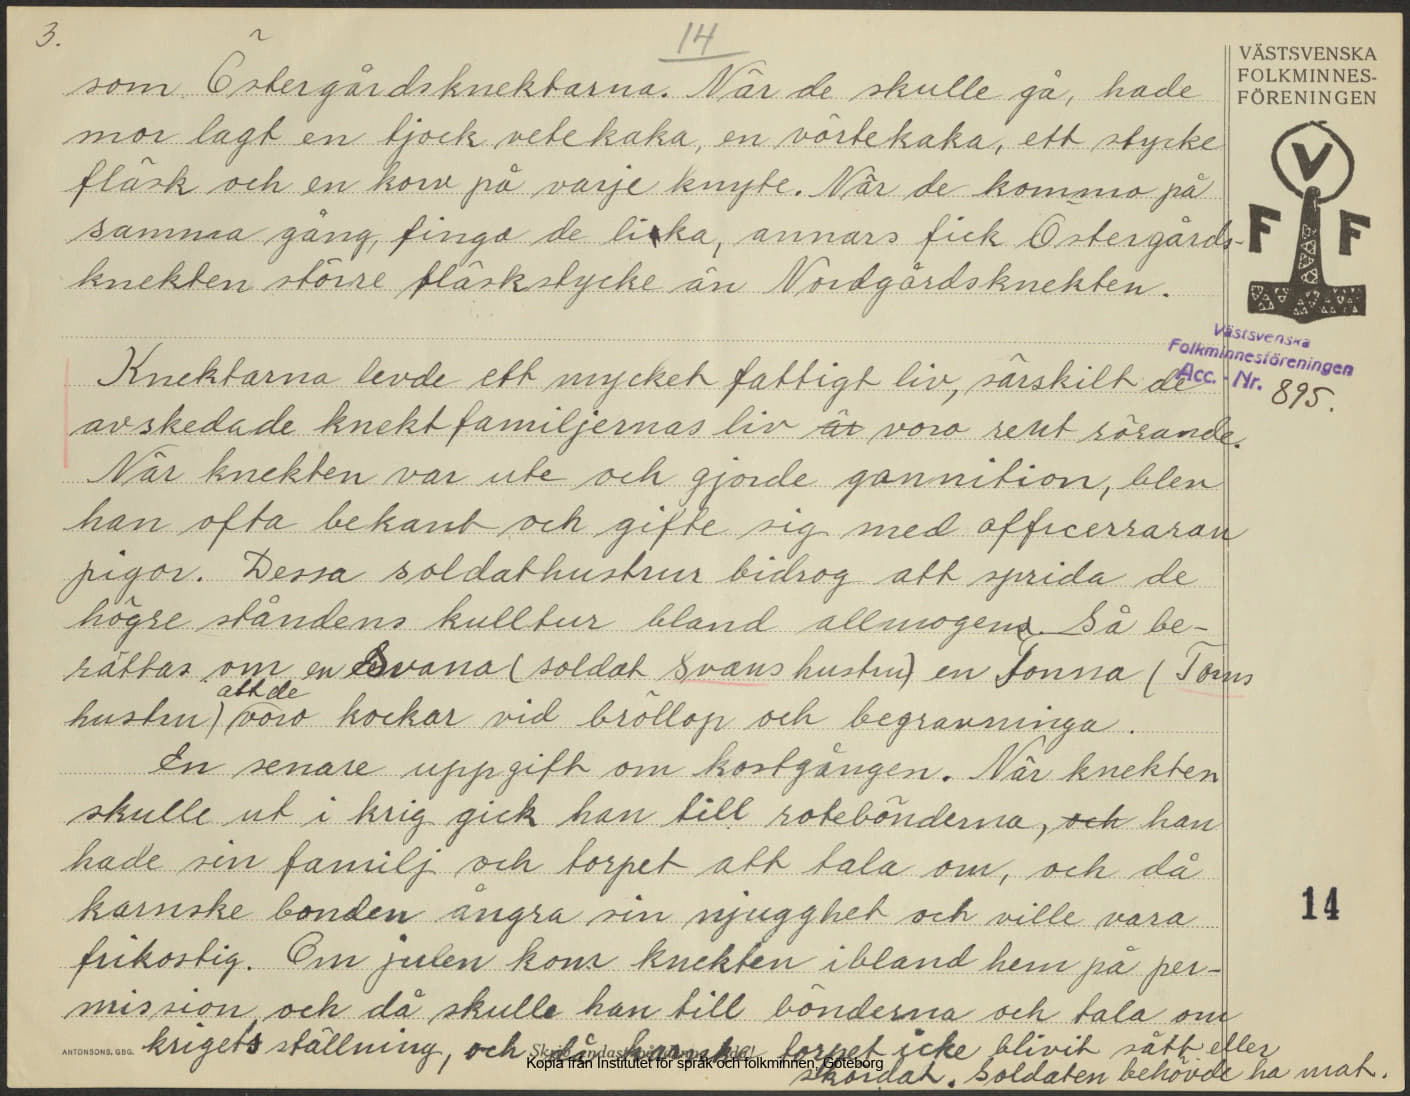 3.
14
VÄSTSVENSKA
FOLKMINNES-
FÖRENINGEN
V
F F
Västsvenska
Folkminnesföreningen
Acc. - Nr. 895.
som Östergårdsknektarna. När de skulle gå, hade
mor lagt en tjock vetekaka, en vörtekaka, ett stycke
fläsk och en korv på varje knyte. När de kommo på
samma gång, fingo de lika, annars fick Östergårds-
knekten större fläskstycke än Nordgårdsknekten.
Knektarna levde ett mycket fattigt liv, särskilt de
avskedade knektfamiljernas liv är voro rent rörande.
När knekten var ute och gjorde gannition, blev
han ofta bekant och gifte sig med officerraran
pigor. Dessa soldathustrur bidrog att sprida de
högre ståndens kulltur bland allmogens. Så be-
rättas om en Svana (soldat Svans hustru) en Tonna (Toms
hustru) att de voro kockar vid bröllop och begravninga.
En senare uppgift om kostgången. När knekten
skulle ut i krig gick han till rotebönderna, och han
hade sin familj och torpet att tala om, och då
karnske bonden ångra sin njugghet och ville vara
frikostig. Om julen kom knekten ibland hem på per-
mission, och då skulle han till bönderna och tala om
krigets ställning, och då kanske torpet icke blivit sått eller
skördat. Soldaten behövde ha mat.
14
ANTONSONS, GBG.
Skriv endast på denna sida!
Kopia från Institutet för språk och folkminnen, Göteborg